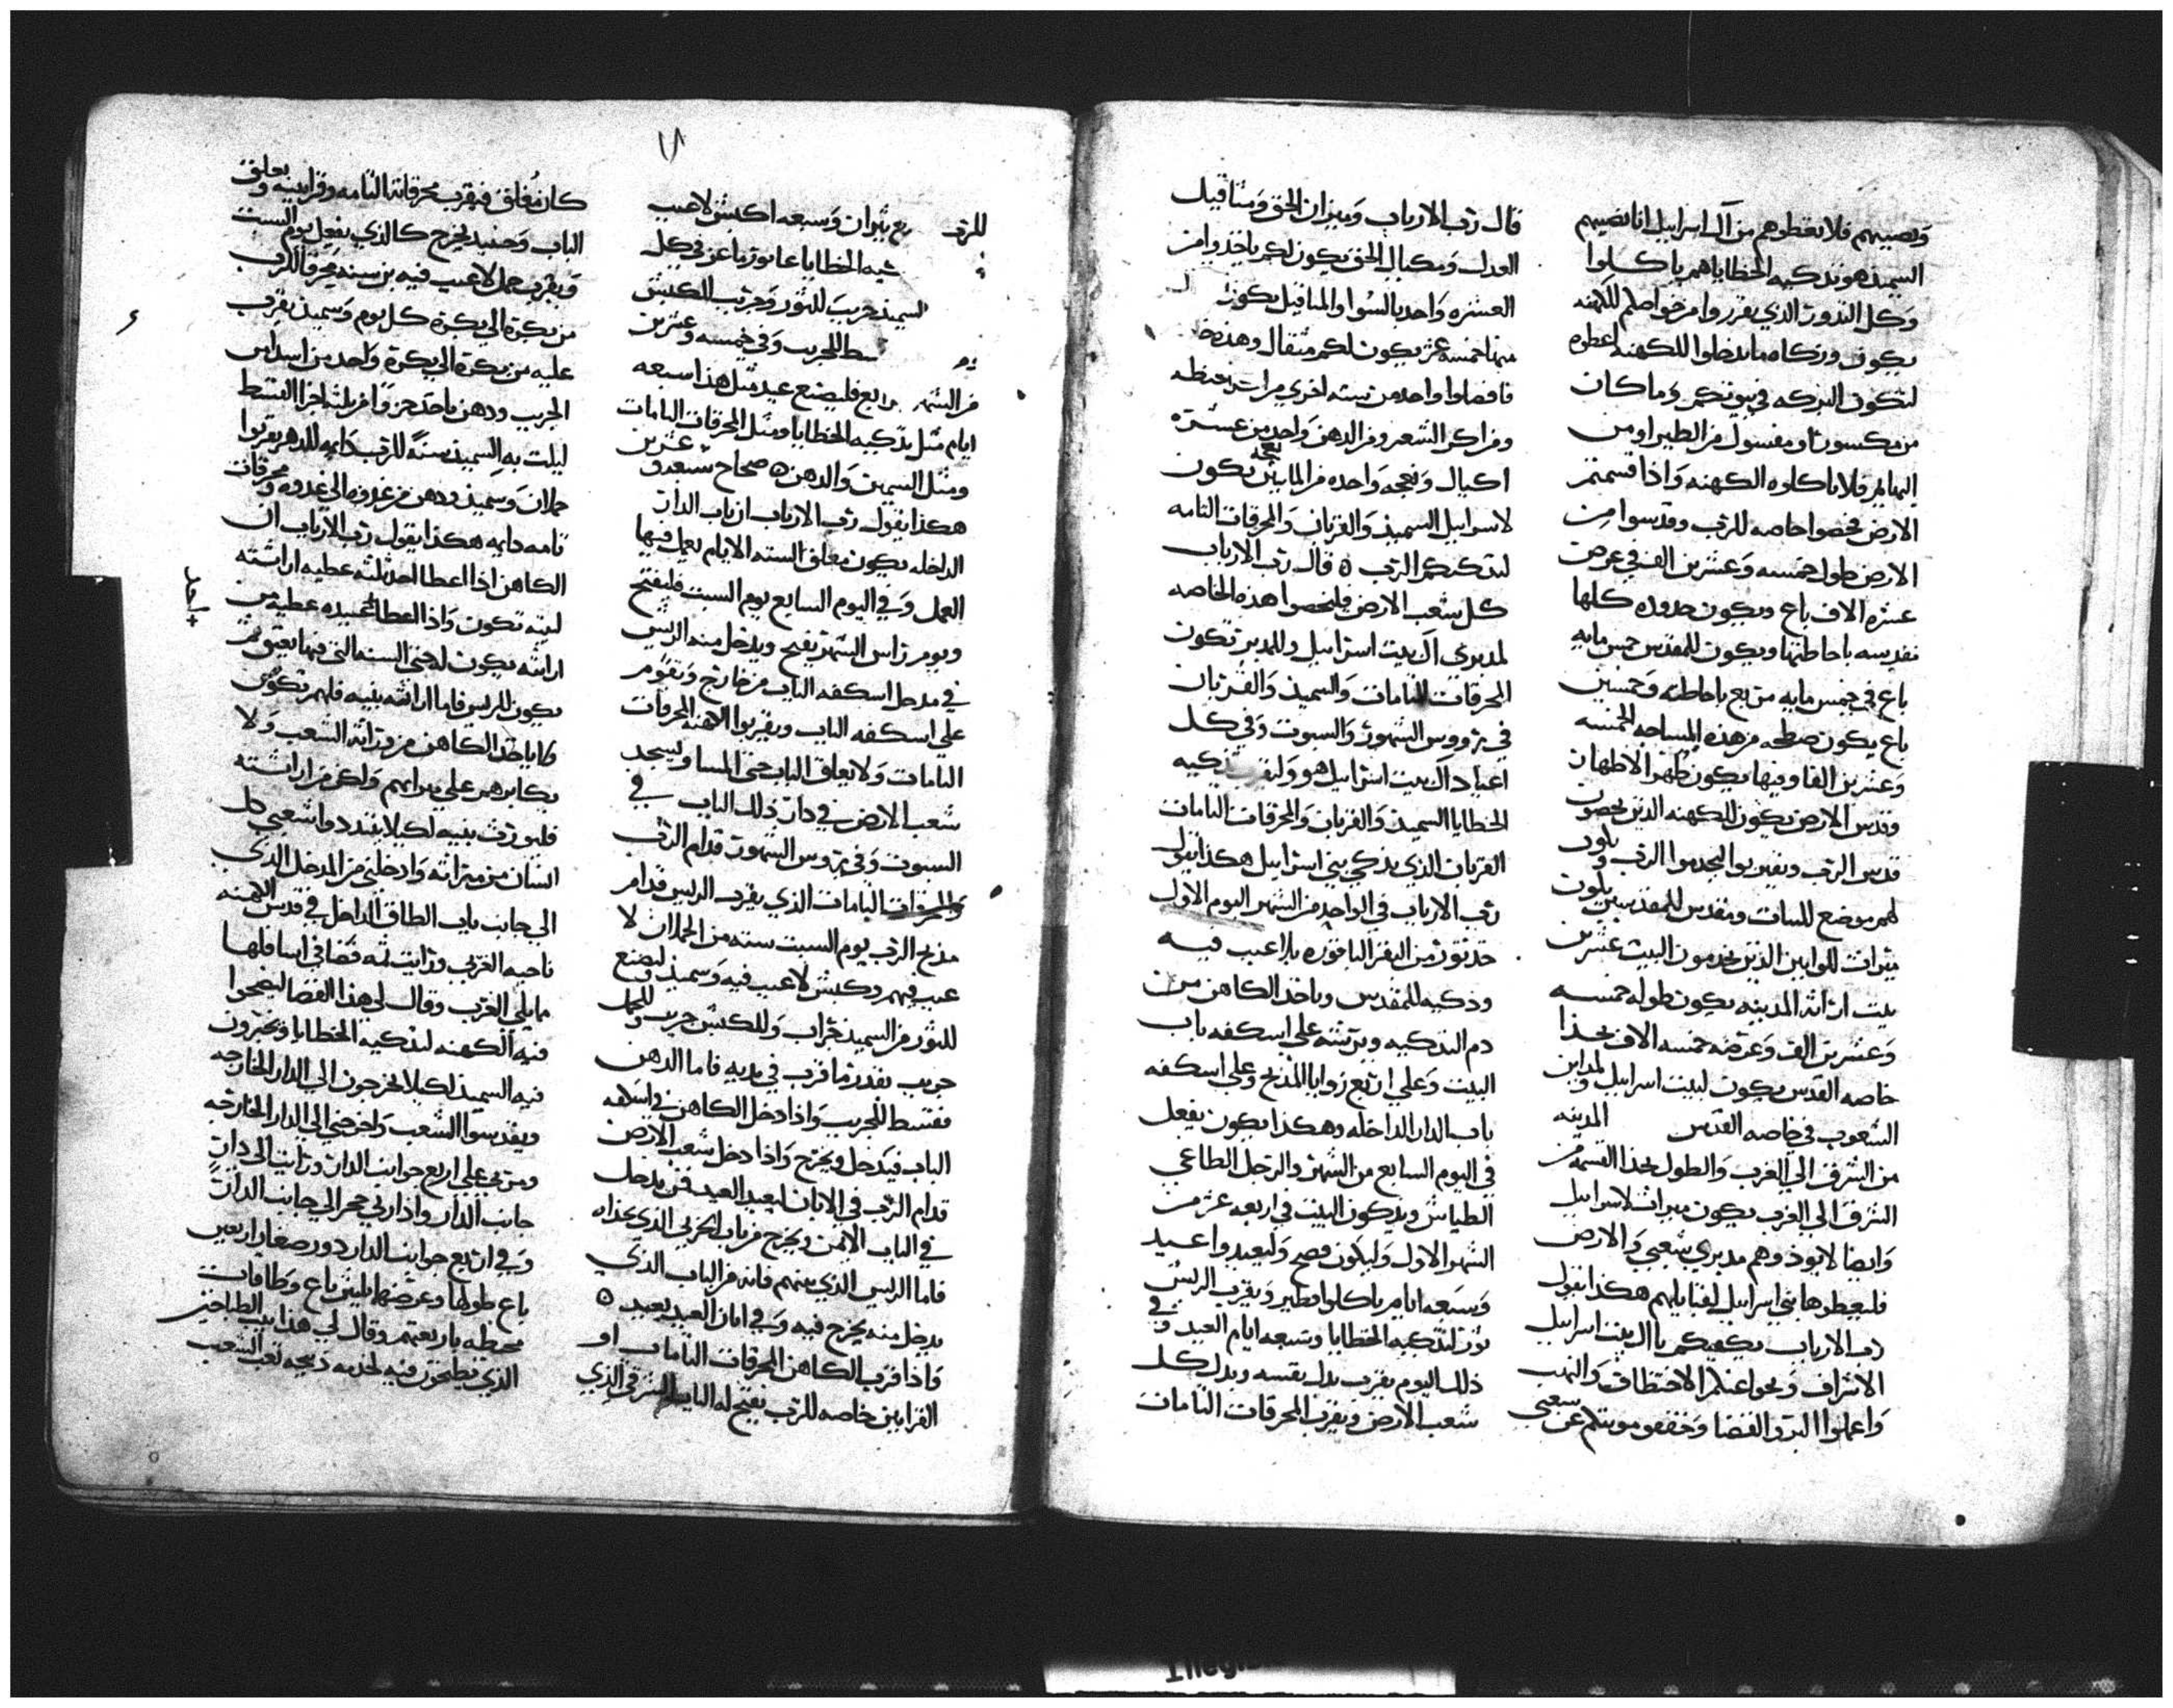 ونصيبهم فلا تعطوهم من آل اسراييل انا نصيبهم
السميد هو تذكيه الخطايا هم ياكلوا
وكل الندور الذي يقرروا من خواصلهم للكهنه
يكون وزكاه ما تدخلوا للكهنه اعطوه
لتكون البركه في بيوتكم وما كان
من مكسور او مفسول من الطير او من
البهايم فلا ياكلوه الكهنه واذا قسمتم
الارض فخصوا خاصه للرب وقدسوا من
الارض طول خمسه وعشرين الف في عرض
عشره الاف باع ويكون حدوده كلها
تقديسه باحاطتها ويكون للمقدس خمس مايه
باع في خمس مايه مربع باحاطته وخمسين
باع يكون من هذه المساحه الخمسه
وعشرين الفا وفيها يكون طهر الاطهار
وقدس الارض يكون للكهنه الذين يخصون
قدس الرب ويقتربوا ليخدموا الرب ويكون
لهم موضع للبيات ومقدس للمقدسين يكون
ميراث للوايين الذين يخدمون البيت عشرين
بيت اراثه المدينه يكون طوله خمسه
وعشرين الف وعرضه خمسه الاف بحذا
خاصه القدس يكون لبيت اسراييل ولمداين
الشعوب في خاصه القدس المدينه
من الشرق الي الغرب والطول بحذا القسمه من
الشرق الي الغرب يكون ميراث لاسراييل
وايضا لا يوذوهم مدبري شعبي والارض
فليعطوها بني اسراييل لقبايلهم هكذا يقول
رب الارباب يكفيكم يا ال بيت اسراييل
الاشراف ونحوا عنكم الاختطاف والنهب
واعملوا البر والقضا وخففوا موتتكم عن شعبي
قال رب الارباب وميزان الحق ومثاقيل
العدل ومكيال الحق يكون لكم ياخذوا من
العشره واحد بالسوا والمثاقيل يكون
منها خمسه عشر يكون لكم مثقال وهذه
فافضلوا واحد من سته اخري مرات بحنطه
ومن اكر الشعير ومن الدهن واحد من عشره
اكيال ونعجه واحده من المايتين نعجه تكون
لاسراييل السميد والقربان والمحرقات التامه
لتذكيكم الرب ٥ قال رب الارباب
كل شعب الارض فليخصوا هذه الخاصه
لمدبري آل بيت اسراييل وللمدبر تكون
المحرقات التامات والسميد والقربان
في رووس الشهور والسبوت وفي كل
اعياد آل بيت اسراييل هو وليقرب تذكيه
الخطايا السميد والقربان والمحرقات التامات
القربان الذي يذكي بني اسراييل هكذا يقول
رب الارباب في الواحد من الشهر اليوم الاول
خذ ثور من البقر الباقوره بلا عيب فيه
وذكيه للمقدس وياخذ الكاهن من
دم التذكيه ويرشه علي اسكفه باب
البيت وعلي اربع زوايا المذبح وعلي اسكفه
باب الدار الداخله وهكذا يكون يفعل
في اليوم السابع من الشهر والرجل الطاغي
الطياش ويذكون البيت في اربعه عشر من
الشهر الاول وليكون فصح وليعيدوا عيد
وسبعه ايام ياكلوا فطير ويقرب الريس
ثور لتذكيه الخطايا وسبعه ايام العيد وفي
ذلك اليوم يقرب بدل نفسه وبدل كل
شعب الارض ويقرب المحرقات التامات
للرب ربع ثيران وسبعه اكبش لا عيب
الخطايا عاتود ماعز في كل
السميد جريب للثور وجريب للكبش
للجريب وفي خمسه وعشرين
من الشهر رابع فليصنع عيد مثل هذا سبعه
ايام مثل تذكيه الخطايا ومثل المحرقات التامات
ومثل السميد والدهن ٥ صحاح سبعه وعشرين
هكذا يقول رب الارباب ان باب الدار
الداخله يكون مغلق السته الايام يعمل فيها
العمل وفي اليوم السابع يوم السبت فليفتح
ويوم راس الشهر يفتح ويدخل منه الريس
في مدخل اسكفه الباب من خارج ويقوم
علي اسكفه الباب ويقربوا الكهنه المحرقات
التامات ولا يغلق الباب حتي المسا ويسجد
شعب الارض في دار ذلك الباب في
السبوت وفي رووس الشهور قدام الرب
والمحرقات التامات الذي يقرب الريس قدام
مذبح الرب يوم السبت سته من الحملان لا
عيب فيهم وكبش لا عيب فيه وسميد ليصنع
للثور من السميد جراب وللكبش جريب وللحمل
جريب بقدر ما قرب في يديه فاما الدهن
فقسط للجريب واذا دخل الكاهن في اسكفه
الباب فيدخل ويخرج واذا دخل شعب الارض
قدام الرب في الابان ليعيد العيد فمن يدخل
في الباب الايمن ويخرج من باب الحربي الذي بحذاه
فاما الريس الذي بينهم فانه من الباب الذي
يدخل منه يخرج فيه وفي ابان العيد يعيد ٥
واذا قرب الكاهن المحرقات التامات او
القرابين خاصه للرب يفتح له الباب الشرقي الذي
كان مغلق فيقرب محرقاته التامه وقرابينه ويغلق
الباب وحينيد يخرج كالذي يفعل يوم السبت
ويقرب حمل لا عيب فيه بن سنه محرقا للرب
من بكره الي بكره كل يوم وسميد يقرب
عليه من بكره الي بكره واحد من اسداس
الجريب ودهن ياخذ جزو من ثلثه اجزا القسط
ليلت به السميد سنه للرب دايمه للدهر يقربوا
حملان وسميد ودهن من غدوه الي غدوه ومحرقات
تامه دايمه هكذا يقول رب الارباب ان
الكاهن اذا اعطا احد ثلثه عطيه اراثته
لبنيه تكون واذا اعطا لعبيده عطيه من
اراثته يكون له حتي السنه التي فيها يعتق ثم
يكون للريس فاما اراثته بنيه فلهم تكون
ولا ياخذ الكاهن من وراثه الشعب ولا
يكابرهم علي ميراثهم ولكن من اراثته
فليورث بنيه لكيلا يتبددوا شعبي كل
انسان من ميراثه وادخلني من المدخل الذي
الي جانب باب الطاق الداخل في قدس الكهنه
ناحيه الغربي ورايت ثم فضا في اسافلها
مما يلي الغرب وقال لي هذا الفضا ليضحوا
فيه الكهنه لتذكيه الخطايا ويخبزون
فيه السميد لكيلا يخرجون الي الدار الخارجه
ويقدسوا الشعب واخرجني الي الدار الخارجه
ومر بي علي اربع جوانب الدار ورايت الي دار
جانب الدار وادار بي حجر الي جانب الدار
وفي اربع جوانب الدار دور صغار اربعين
باع طولها وعرضها ثلثين باع وطاقات
محيطه باربعتهم وقال لي هذا بيت الطباخين
الذي يطبخون فيه لخدمه ذبيحه تعب الشعب